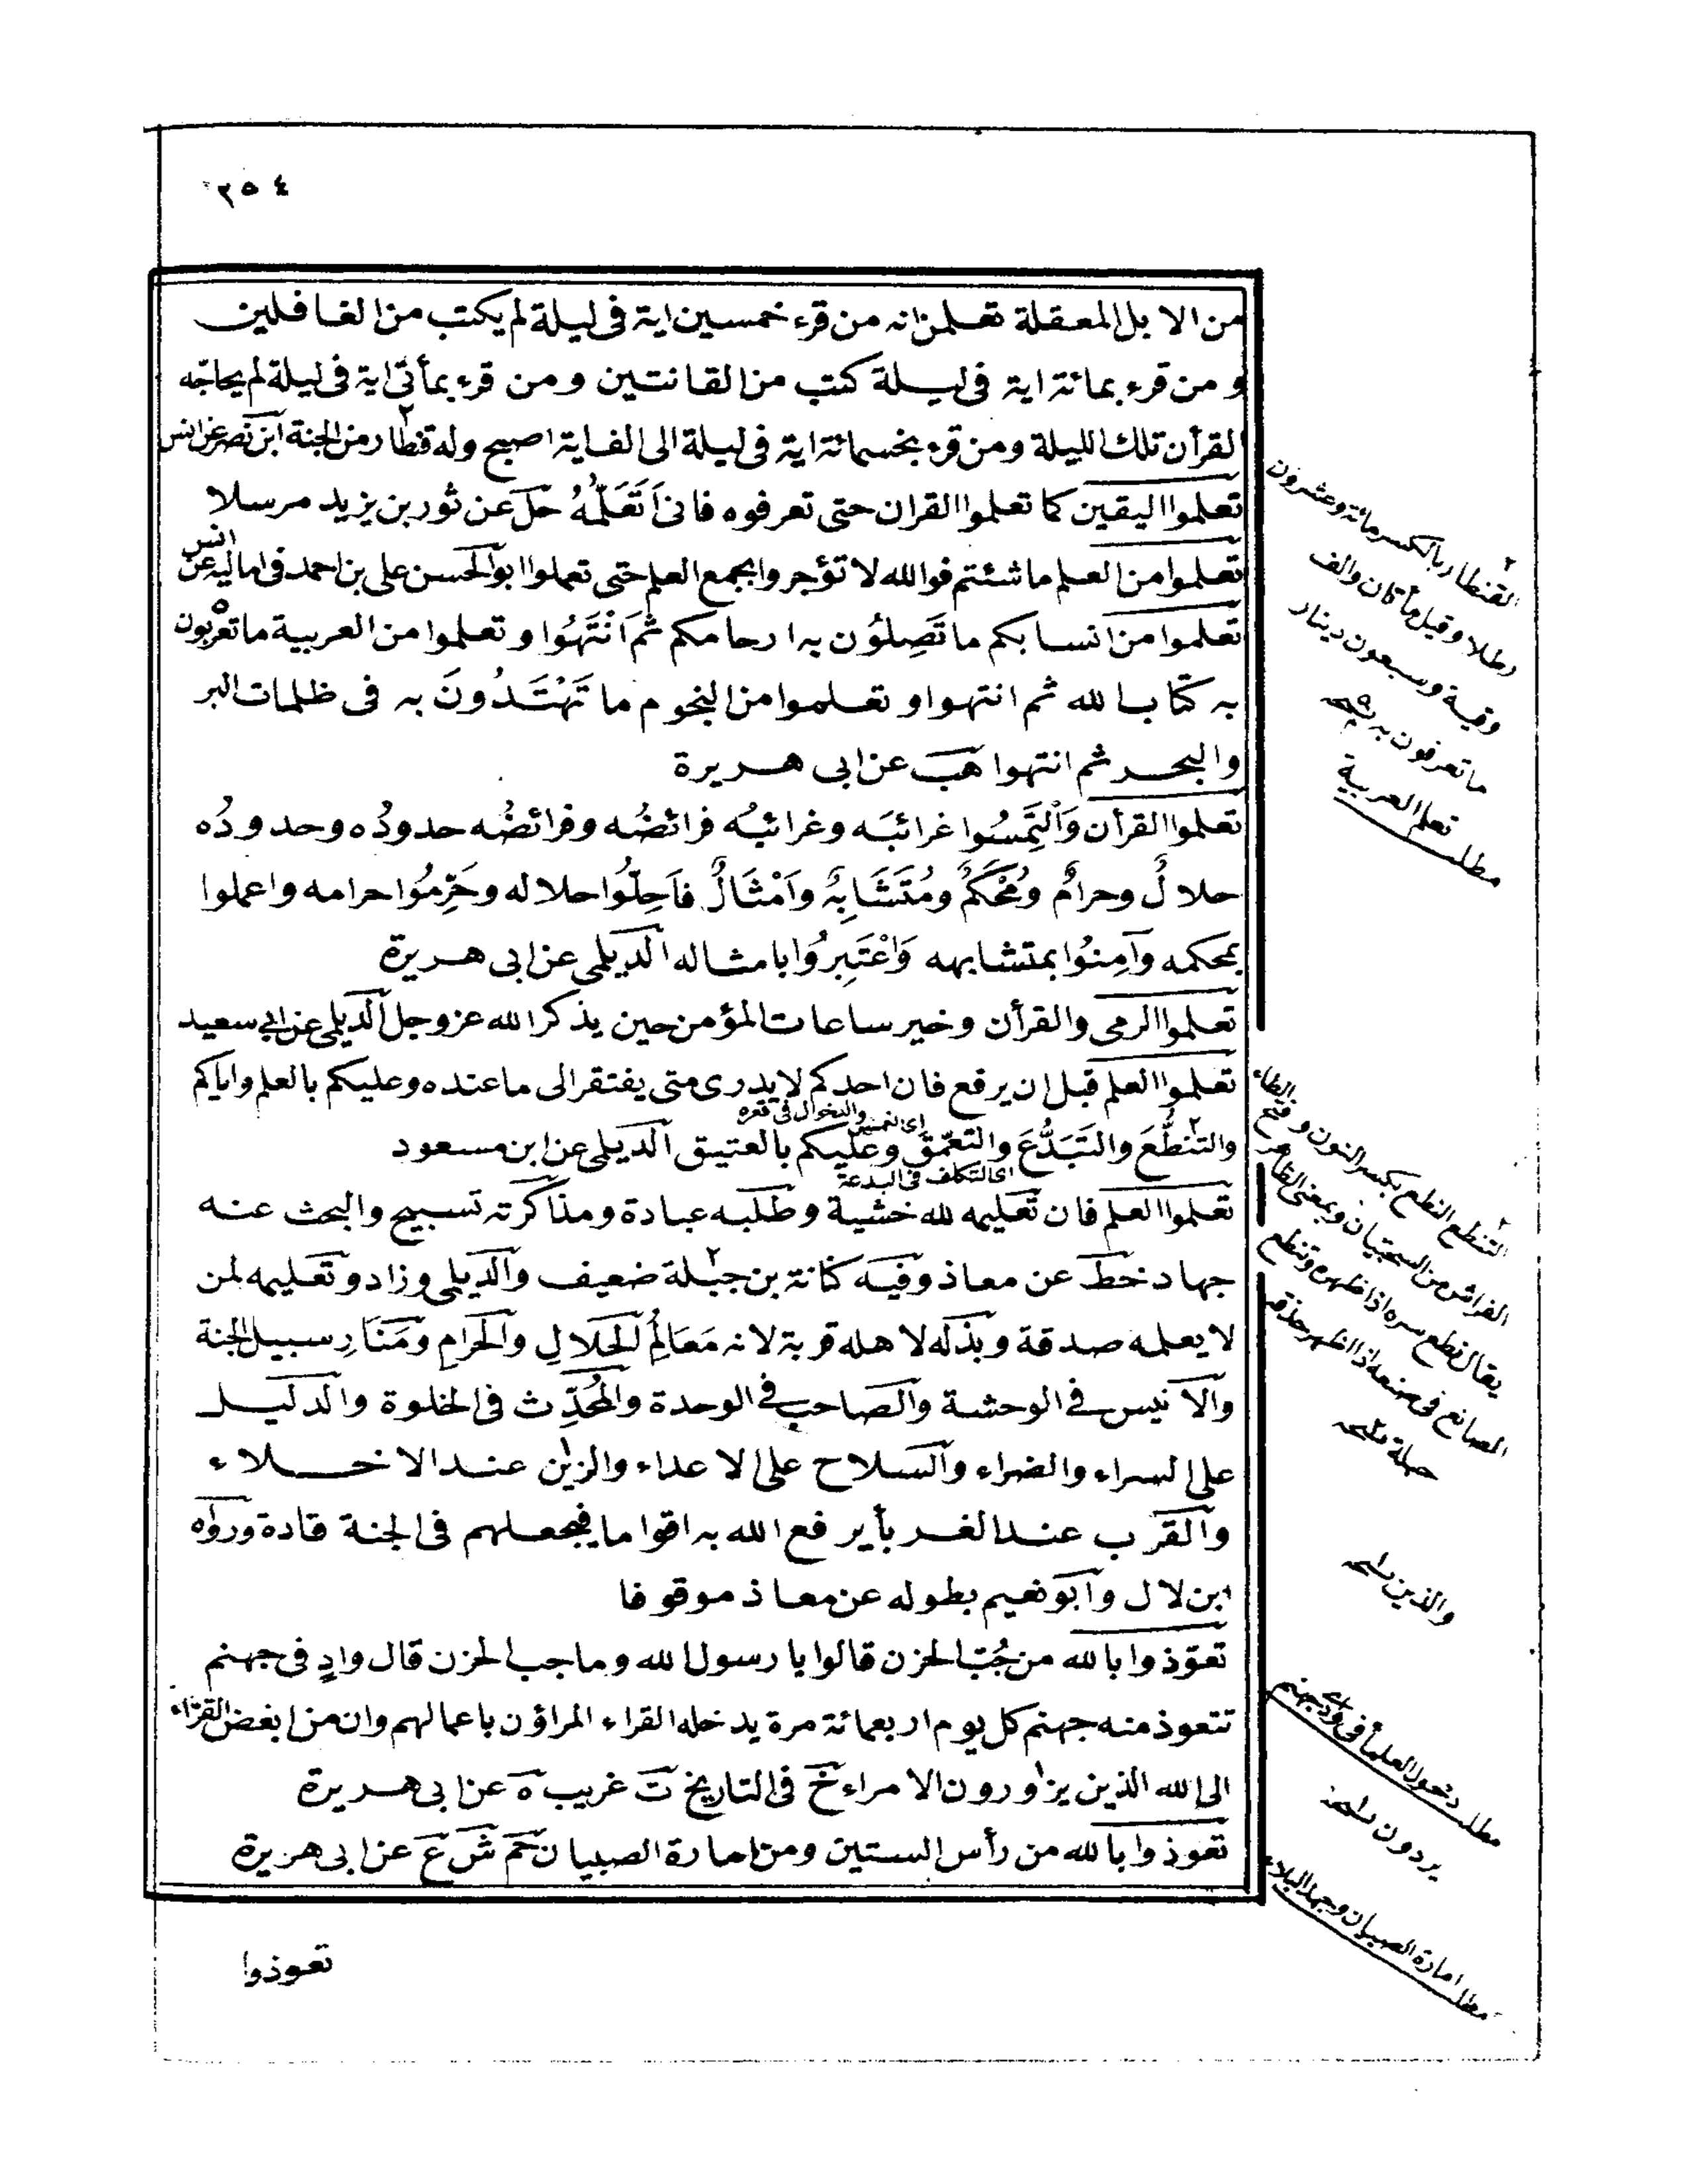 ٢٥٤
من الابل المعقلة تعلمن انه من قرء خمسين اية فى ليلة لم يكتب من الغافلين
ومن قرء بمائة اية فى ليلة كتب من القانتين ومن قرء بمأتى اية فى ليلة لم يحاجّه
القرأن تلك الليلة ومن قرء بخسمائة اية فى ليلة الى الف اية اصبح وله قنطار من الجنة ابن نصر عن انس
تعلموا اليقين كما تعلموا القران حتى تعرفوه فانى اَتَعَلَّمُهُ حل عن ثور بن يزيد مرسلا
تعلموا من العلم ما شئتم فوالله لا تؤجروا بجمع العلم حتى تعملوا ابو الحسن على بن احمد فى اماليه عن انس
تعلموا من انسابكم ما تَصِلُون به ارحامكم ثم اَنْتَهُوا وتعلموا من العربية ما تعربون
به كتاب الله ثم انتهوا وتعلموا من النجوم ما تَهْتَدُونَ به فى ظلمات البر
والبحر ثم انتهوا هب عن ابى هريرة
تعلموا القرأن وَالْتَمِسُوا غرائبَه وغرائبُه فرائضُه وفرائضُه حدودُه وحدودُه
حلالٌ وحرامٌ ومُحْكَمٌ ومُتَشَابِهٌ واَمْثَالٌ فاَحِلّوا حلاله وحَرِّمُوا حرامه واعملوا
بمحكمه وآمِنُوا بمتشابهه وَاعْتَبِرُوا بامثاله الديلمى عن ابى هريرة
تعلموا الرمى والقرأن وخير ساعات المؤمن حين يذكر الله عز وجل الديلمى عن ابى سعيد
تعلموا العلم قبل ان يرفع فان احدكم لا يدرى متى يفتقر الى ما عنده وعليكم بالعلم واياكم
والتنطُّعَ والتَبَدُّعَ والتعمّق وعليكم بالعتيق الديلمى عن ابن مسعود
اى التكلف فى البدعة
تعلموا العلم فان تعليمه لله خشية وطلبه عبادة ومذاكرته تسبيح والبحث عنه
جهاد خط عن معاذ وفيه كنانة بن جبلة ضعيف والديلمى وزاد وتعليمه لمن
لا يعلمه صدقة وبذله لاهله قربة لانه مَعَالِمُ الحَلالِ والحَرامِ ومَنَارِ سبيل الجنة
والانيس فى الوحشة والصاحب فى الوحدة والمُحَدِّث فى الخلوة والدليل
على السراء والضراء والسلاح على الاعداء والزين عند الاخلاء
والقرب عند الغربأ يرفع الله به اقواما فيجعلهم فى الجنة قادة ورواه
ابن لال وابو نعيم بطوله عن معاذ موقوفا
تعوّذوا بالله من جُبّ الحزن قالوا يا رسول الله وما جب الحزن قال وادٍ فى جهنم
تتعوذ منه جهنم كل يوم اربعمائة مرة يدخله القراء المراؤن باعمالهم وان من ابغض القرّاء
الى الله الذين يزاورون الامراء خ فى التاريخ ت غريب ه عن ابى هريرة
تعوذوا بالله من رأس الستين ومن امارة الصبيان حم ش ع عن ابى هريرة
تعوذوا
القنطار بالكسر مائة وعشرون
رطلا وقيل مأتان والف
وقية وسبعون دينار
ما تعرفون به نسخه
تعلم العربية
مطلب
التنطع النطع بكسر النون وفتح الطاء
يقال نطع سره اذا ظهره وتنطع
الصانع فى صنعه اذا اظهر حذقه
والذين نسخه
يردون نسخه
مطلب امارة الصبيان وجهد البلاء